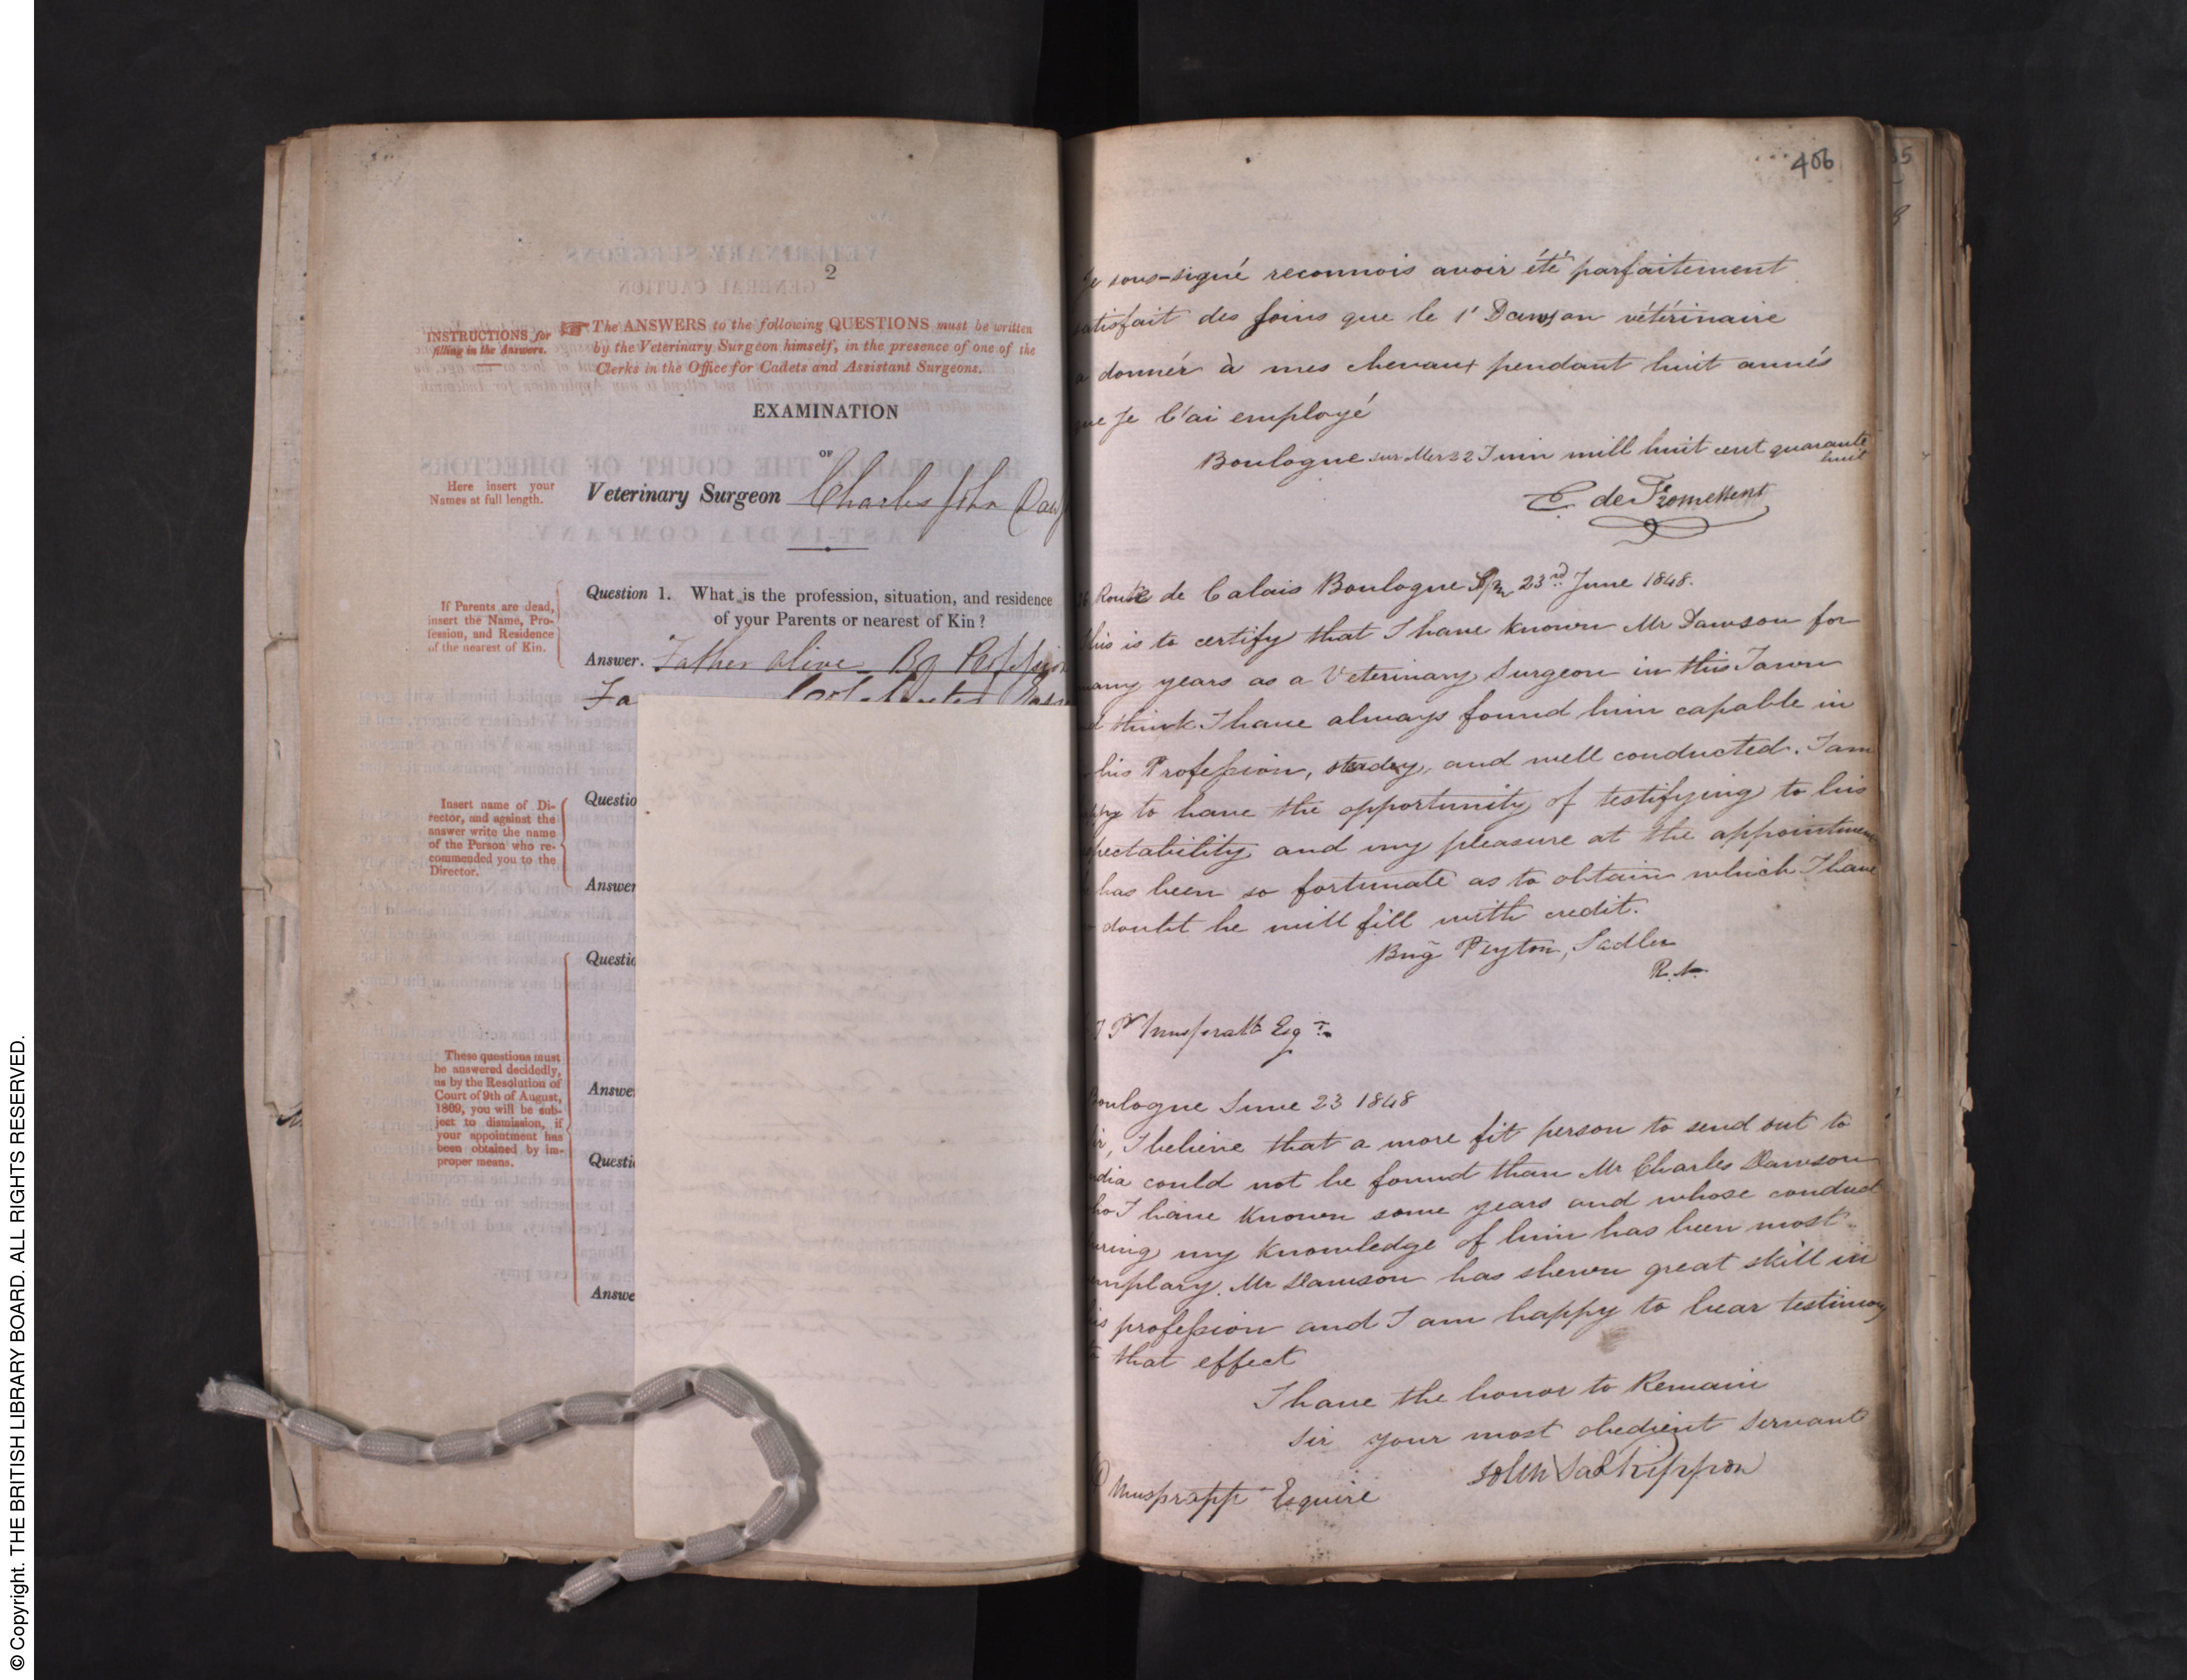 2
INSTRUCTIONS for
filling in the Answers.
The ANSWERS to the following QUESTIONS must be written
by the Veterinary Surgeon himself, in the presence of one of the
Clerks in the Office for Cadets and Assistant Surgeons.
EXAMINATION
OF
Here insert your
Names at full length.
Veterinary Surgeon Charles John Daw
If Parents are dead,
insert the Name, Pro-
fession, and Residence
of the nearest of Kin.
Question 1. What is the profession, situation, and residence
of your Parents or nearest of Kin?
Answer. Father alive By Profession
Fa
Questio
Insert name of Di-
rector, and against the
answer write the name
of the Person who re-
commended you to the
Director.
Answer
Questio
These questions must
be answered decidedly,
as by the Resolution of
Court of 9th of August,
1809, you will be sub-
ject to dismission, if
your appointment has
been obtained by im-
proper means.
Answe
Questi
Answe
406
Je sous-signé reconnois avoir été parfaitement
satisfait des soins que le Sr Dawson vétérinaire
a donnér à mes chevaux pendant huit annés
que Je l'ai employé
Boulogne sur Mer 22 Juin mill huit cent quarante
huit
de Fromessent
Route de Calais Boulogne S/m 23rd June 1848.
This is to certify that I have known Mr Dawson for
many years as a Veterinary Surgeon in this Town
I think I have always found him capable in
his Profession, steady, and well conducted. I am
happy to have the opportunity of testifying to his
respectability and my pleasure at the appointment
he has been so fortunate as to obtain which I have
no doubt he will fill with credit.
Peyton, Sadler
R.N.
Muspratt Esqr
Boulogne June 23 1848
Sir, I believe that a more fit person to send out to
India could not be found than Mr Charles Dawson
who I have known some years and whose conduct
during my knowledge of him has been most
exemplary. Mr Dawson has shewn great skill in
his profession and I am happy to bear testimony
to that effect
I have the honor to Remain
Sir your most obedient servant
John
Muspratt Esquire
© Copyright. THE BRITISH LIBRARY BOARD. ALL RIGHTS RESERVED.